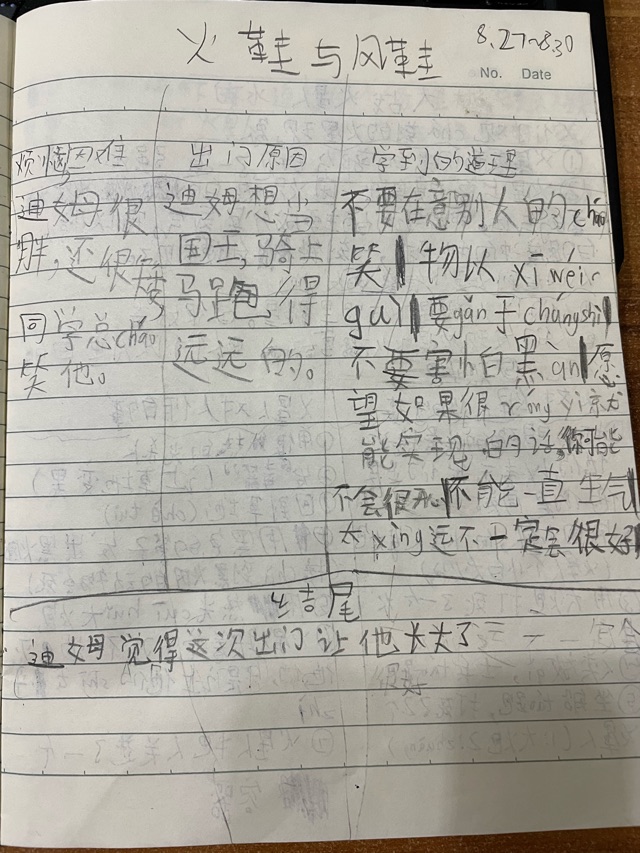 火鞋与风鞋
8.27~8.30
No. Date
烦恼困难 出门原因 学到的道理
迪姆很
胖,还很矮,
同学总cháo
笑他。
迪姆想当
国王,骑上
马跑得
远远的。
不要在意别人的cháo
笑 物以 xī wéi
guì 要gǎn于chángshì
不要害怕黑àn 愿
望如果很róng yì就
能实现的话,你可能
不会很 不能一直生气
太xìng运不一定会很好
结尾
迪姆觉得这次出门让他长大了